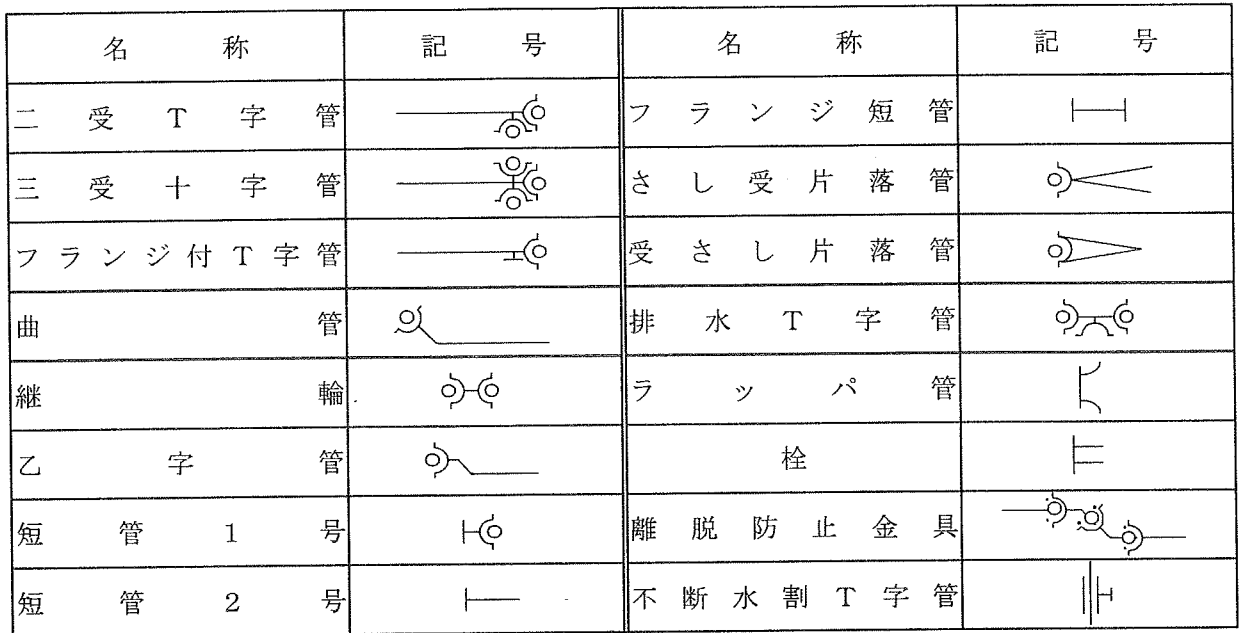 名称 記号 名称 記号
二受T字管 フランジ短管
三受十字管 さし受片落管
フランジ付T字管 受さし片落管
曲管 排水T字管
継輪 ラッパ管
乙字管 栓
短管1号 離脱防止金具
短管2号 不断水割T字管